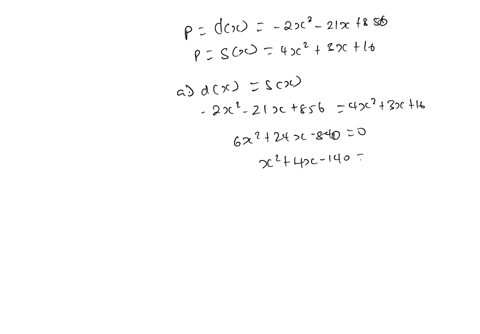 P = d(x) = -2x² - 21x + 856
P = S(x) = 4x² + 3x + 16
a) d(x) = S(x)
-2x² - 21x + 856 = 4x² + 3x + 16
6x² + 24x - 840 = 0
x² + 4x - 140 =